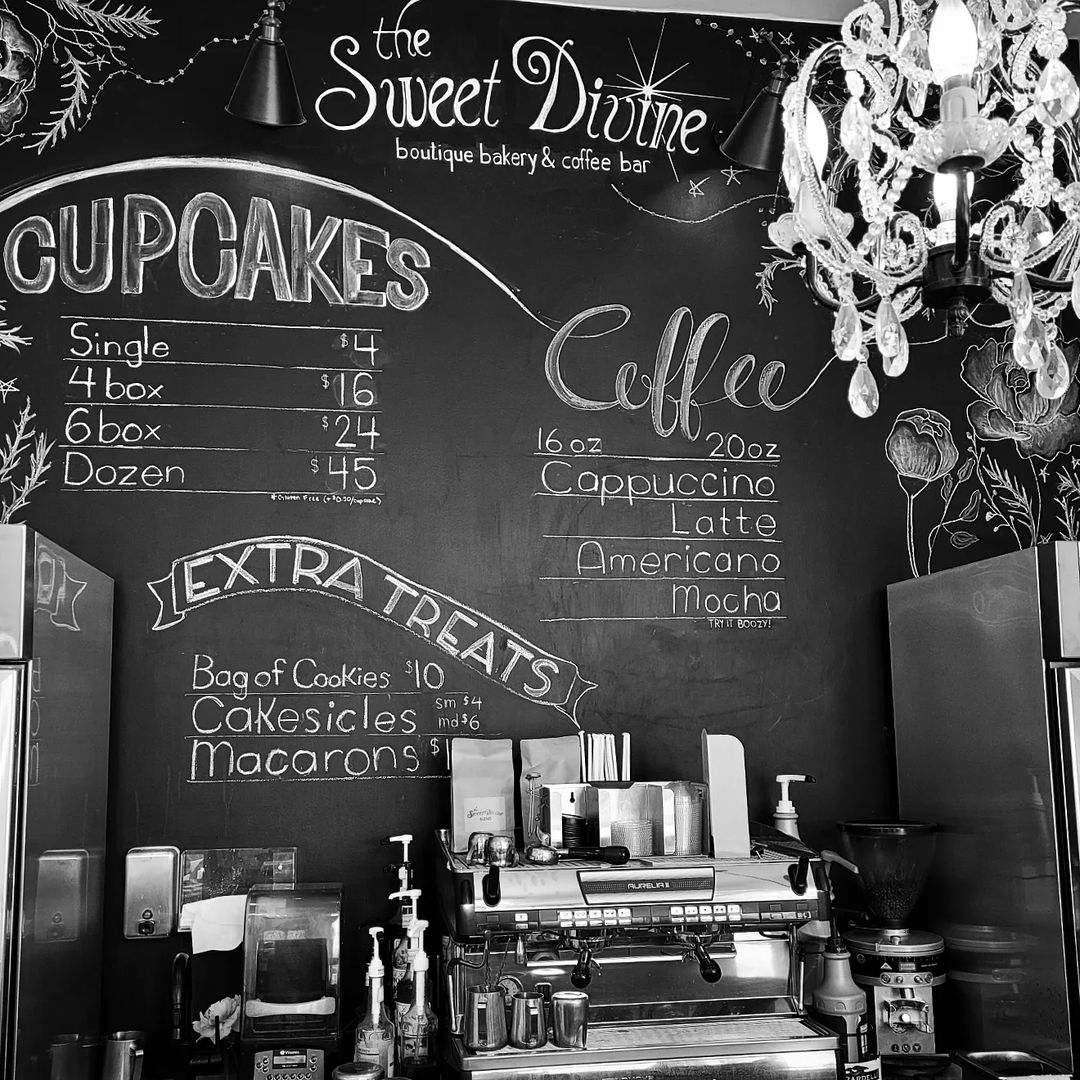 the
Sweet Divine
boutique bakery & coffee bar
CUPCAKES
Single $4
4 box $16
6 box $24
Dozen $45
* Gluten Free (+$0.50/cupcake)
Coffee
16 oz 20oz
Cappuccino
Latte
Americano
Mocha
TRY IT BOOZY!
EXTRA TREATS
Bag of Cookies $10
Cakesicles sm $4
md $6
Macarons $
AURELIA II